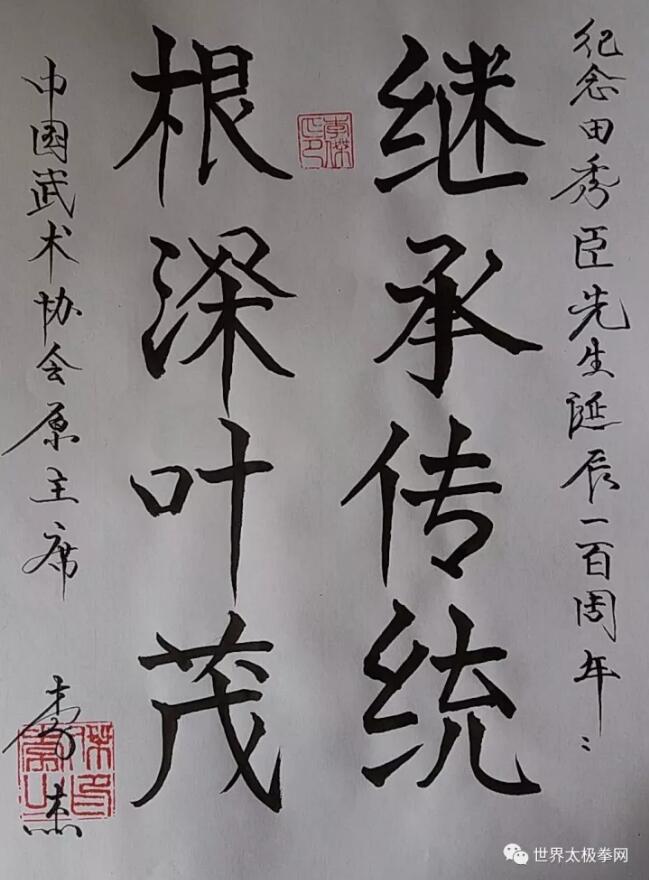 纪念田秀臣先生诞辰一百周年
继承传统
根深叶茂
中国武术协会原主席
李杰
世界太极拳网